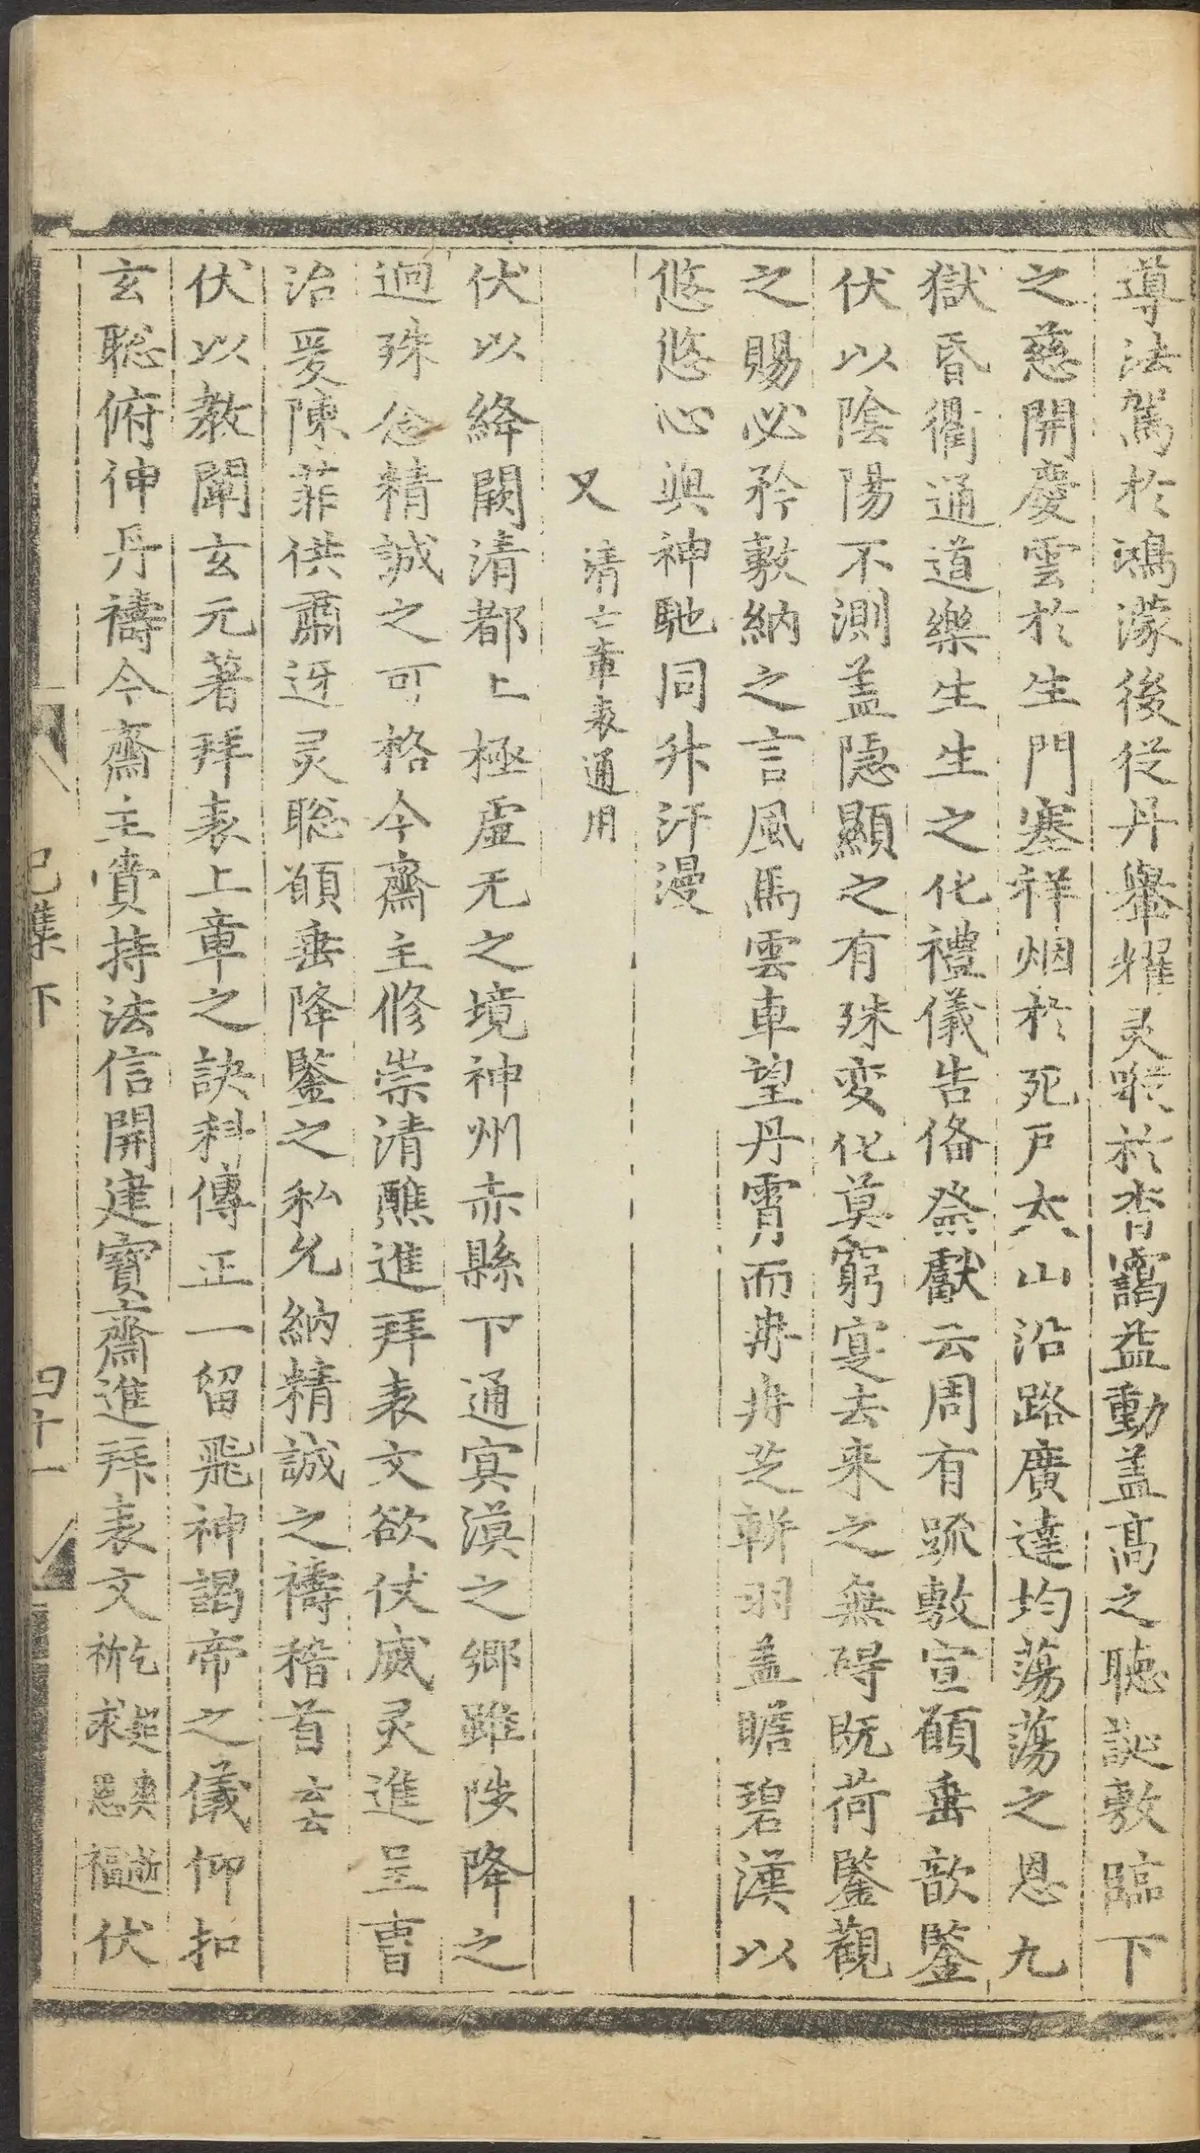 導法駕於鴻濛後從丹轝耀灵於杳靄益動盖高之聴誕敷臨下
之慈開慶雲於生門塞祥烟於死戸太山沿路廣達均蕩蕩之恩九
獄昏衢通道樂生生之化禮儀告俻祭獻云周有䟽敷宣頋垂歆鑒
伏以陰陽不測盖隠顯之有殊変化莫窮寔去来之無碍既荷鑒觀
之賜必矜敷納之言風馬雲車望丹霄而冉冉芝軿羽盖瞻碧漢以
悠悠心與神馳同升汗漫
又 清亡章表通用
伏以絳闕清都上極虚无之境神州赤縣下通寞漠之郷雖陟降之
迥殊念精誠之可格今齋主修崇清醮進拜表文欲仗威灵進呈曺
治爰陳菲供肅迓灵聡頋垂降鑒之私允納精誠之禱稽首云云
伏以教闡玄元著拜表上章之訣科傳正一留飛神謁帝之儀仰扣
玄聡俯伸丹禱今齋主賫持法信開建寳齋進拜表文乞超奕逝祈求恩福伏
巳集下 四十一